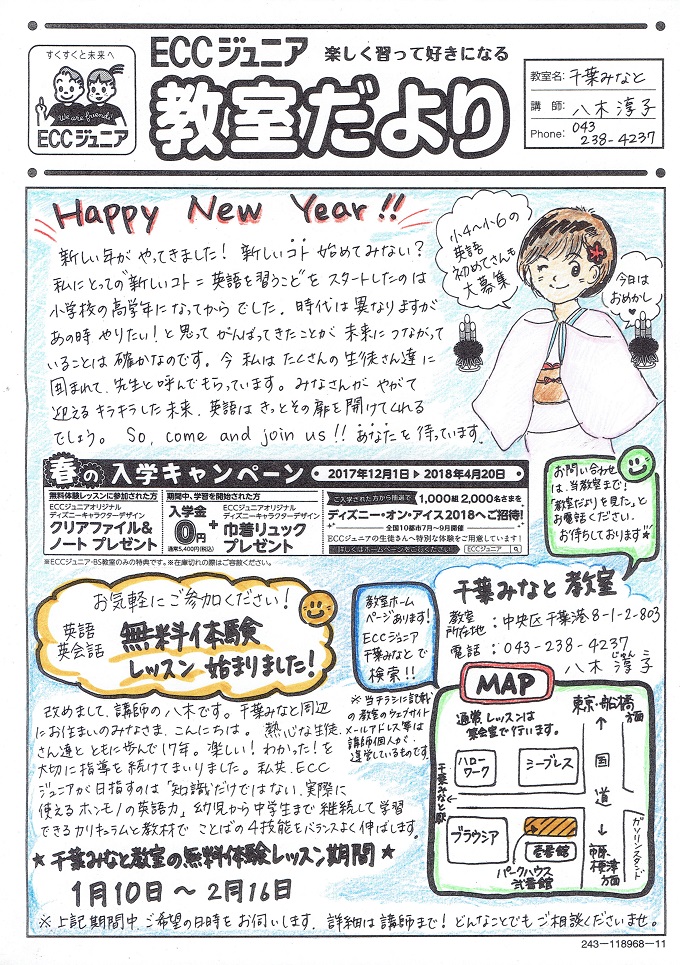 すくすくと未来へ
We are friends!
ECCジュニア
ECCジュニア 楽しく習って好きになる
教室だより
教室名: 千葉みなと
講師: 八木 淳子
Phone: 043
238-4237
Happy New Year!!
新しい年が やってきました! 新しいコト 始めてみない?
私にとっての"新しいコト=英語を習うこと"を スタートしたのは
小学校の高学年になってから でした. 時代は 異なりますが
あの時 やりたい!と思って がんばってきたことが 未来につながって
いることは 確かなのです。今 私は たくさんの 生徒さん達に
囲まれて、先生と呼んでもらっています。みなさんが やがて
迎える キラキラした未来、英語は きっとその扉を開けてくれる
でしょう。 So, come and join us!! あなたを 待っています.
小4~小6の
英語
初めてさんも
大募集
今日は
おめかし
春の入学キャンペーン
2017年12月1日▶2018年4月20日
無料体験レッスンに参加された方
ECCジュニアオリジナル
ディズニーキャラクターデザイン
クリアファイル&
ノート プレゼント
期間中、学習を開始された方
入学金
0円
通常5,400円(税込)
+
ECCジュニアオリジナル
ディズニーキャラクターデザイン
巾着リュック
プレゼント
ご入学された方から抽選で 1,000組 2,000名さまを
ディズニー・オン・アイス2018へご招待!
全国10都市7月~9月開催
ECCジュニアの生徒さんへ特別な体験をご用意しています!
詳しくはホームページをご覧ください。 ECCジュニア
※ECCジュニア・BS教室のみの特典です。※在庫切れの際はご容赦ください。
お問い合わせ
は、当教室まで!
「教室だよりを見た」と
お電話ください.
お待ちしております★
お気軽にご参加ください!
英語
英会話
無料体験
レッスン 始まりました!
教室ホーム
ページあります!
ECCジュニア
千葉みなと で
検索!!
※当チラシに記載
の教室のウェブサイト
メールアドレス等は
講師個人が
運営しているものです.
千葉みなと 教室
教室
所在地 : 中央区 千葉港 8-1-2-803
電話 : 043-238-4237
八木 淳子
じゅん こ
MAP
通常 レッスンは
集会室で行います。
東京・船橋
方面
ハロー
ワーク
シーブレス
千葉みなと駅
国道
ブラウシア
壱番館
パークハウス
弐番館
ガソリンスタンド
市原・木更津
方面
改めまして、講師の 八木です。千葉みなと周辺
にお住まいのみなさま、こんにちは。 熱心な生徒
さん達と ともに歩んで17年。楽しい! わかった! を
大切に指導を続けてまいりました。私共、ECC
ジュニアが目指すのは「知識だけではない、実際に
使えるホンモノの英語力」幼児から中学生まで 継続して学習
できるカリキュラムと教材で ことばの4技能をバランスよく伸ばします.
★千葉みなと教室の無料体験レッスン期間★
1月10日 ~ 2月16日
※上記期間中、ご希望の日時をお伺いします. 詳細は講師まで! どんなことでも ご相談くださいませ。
243-118968-11